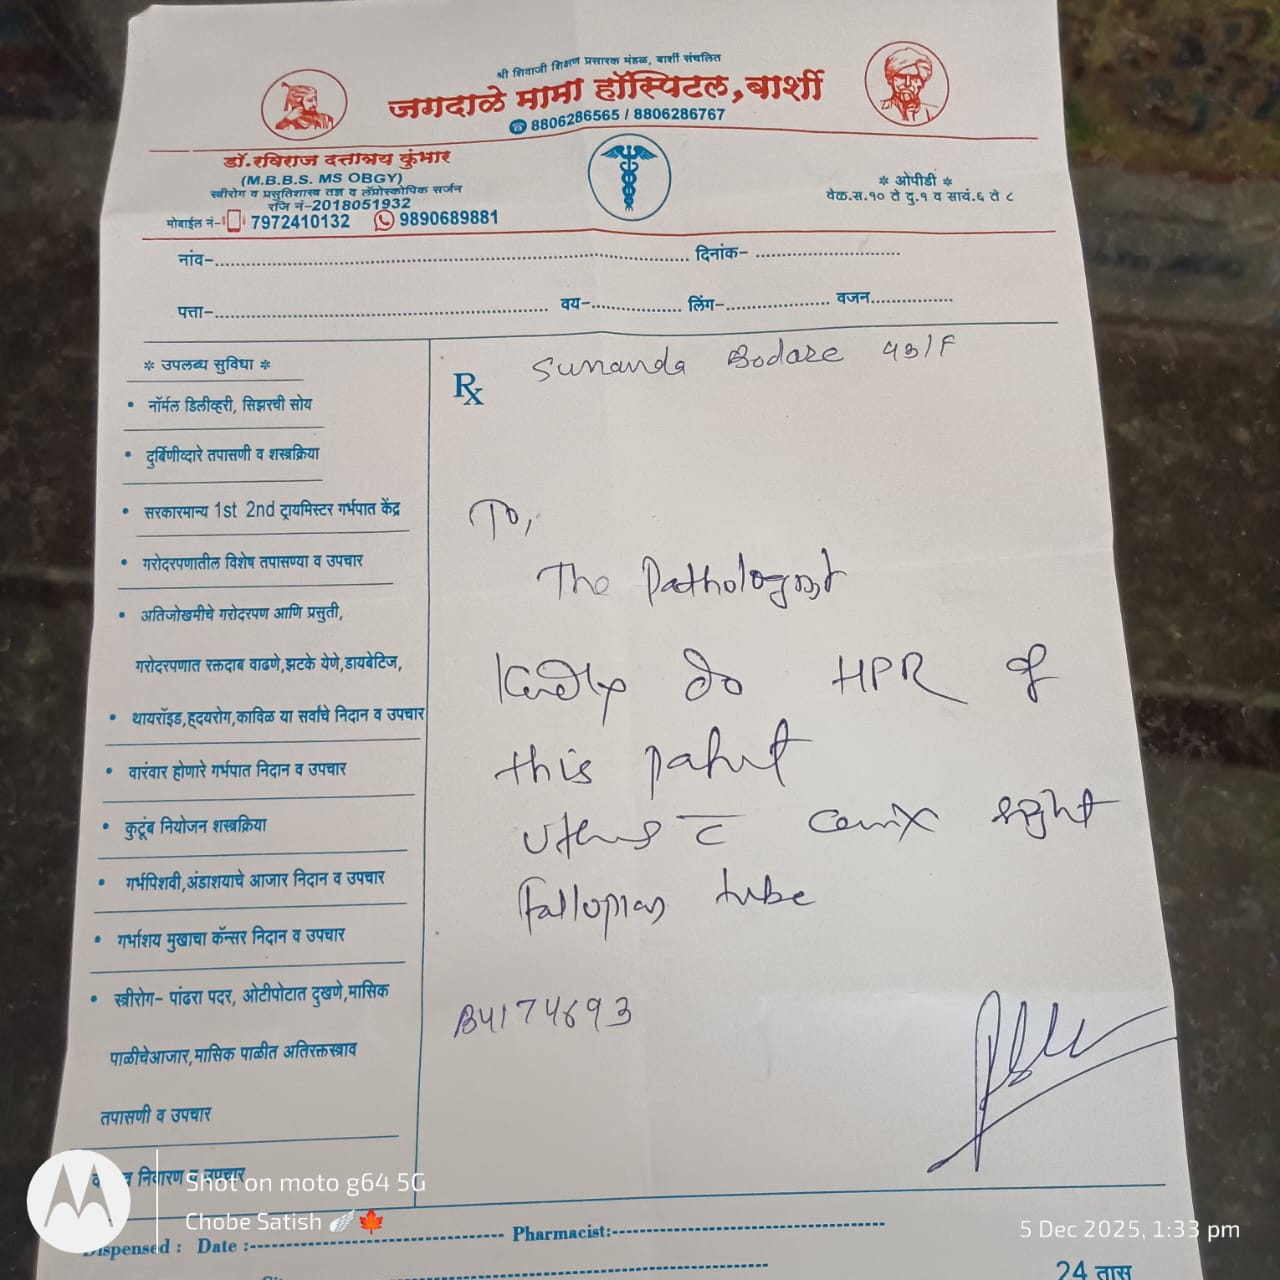 श्री शिवाजी शिक्षण प्रसारक मंडळ, बार्शी संचलित
जगदाळे मामा हॉस्पिटल, बार्शी
8806286565 / 8806286767
डॉ. रविराज दत्तात्रय कुंभार
(M.B.B.S. MS OBGY)
स्त्रीरोग व प्रसुतिशास्त्र तज्ञ व लॅप्रोस्कोपिक सर्जन
रजि नं-2018051932
मोबाईल नं- 7972410132 9890689881
* ओपीडी *
वेळ.स.१० ते दु.१ व सायं.६ ते ८
नांव- दिनांक-
पत्ता- वय- लिंग- वजन
* उपलब्ध सुविधा *
• नॉर्मल डिलीव्हरी, सिझरची सोय
• दुर्बिणीव्दारे तपासणी व शस्त्रक्रिया
• सरकारमान्य 1st 2nd ट्रायमिस्टर गर्भपात केंद्र
• गरोदरपणातील विशेष तपासण्या व उपचार
• अतिजोखमीचे गरोदरपण आणि प्रसुती,
गरोदरपणात रक्तदाब वाढणे,झटके येणे,डायबेटिज,
• थायरॉइड,हृदयरोग,काविळ या सर्वांचे निदान व उपचार
• वारंवार होणारे गर्भपात निदान व उपचार
• कुटूंब नियोजन शस्त्रक्रिया
• गर्भपिशवी,अंडाशयाचे आजार निदान व उपचार
• गर्भाशय मुखाचा कॅन्सर निदान व उपचार
• स्त्रीरोग- पांढरा पदर, ओटीपोटात दुखणे,मासिक
पाळीचेआजार,मासिक पाळीत अतिरक्तस्त्राव
तपासणी व उपचार
निवारण व उपचार
Rx
Sunanda Bodare 43/F
To,
The Pathologist
Kindly do HPR of
this patient
uterus c̅ cervix right
Fallopian tube
B4174693
Dispensed : Date :- Pharmacist:-
24 तास
Shot on moto g64 5G
Chobe Satish
5 Dec 2025, 1:33 pm